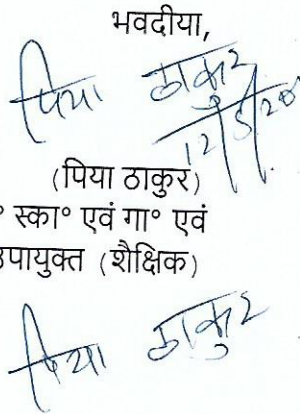 भवदीया,
पिया ठाकुर
(पिया ठाकुर)
° स्का° एवं गा° एवं
उपायुक्त (शैक्षिक)
पिया ठाकुर